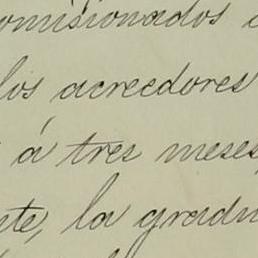 omisionados
los acreedores
á tres meses,
nte, la gradu